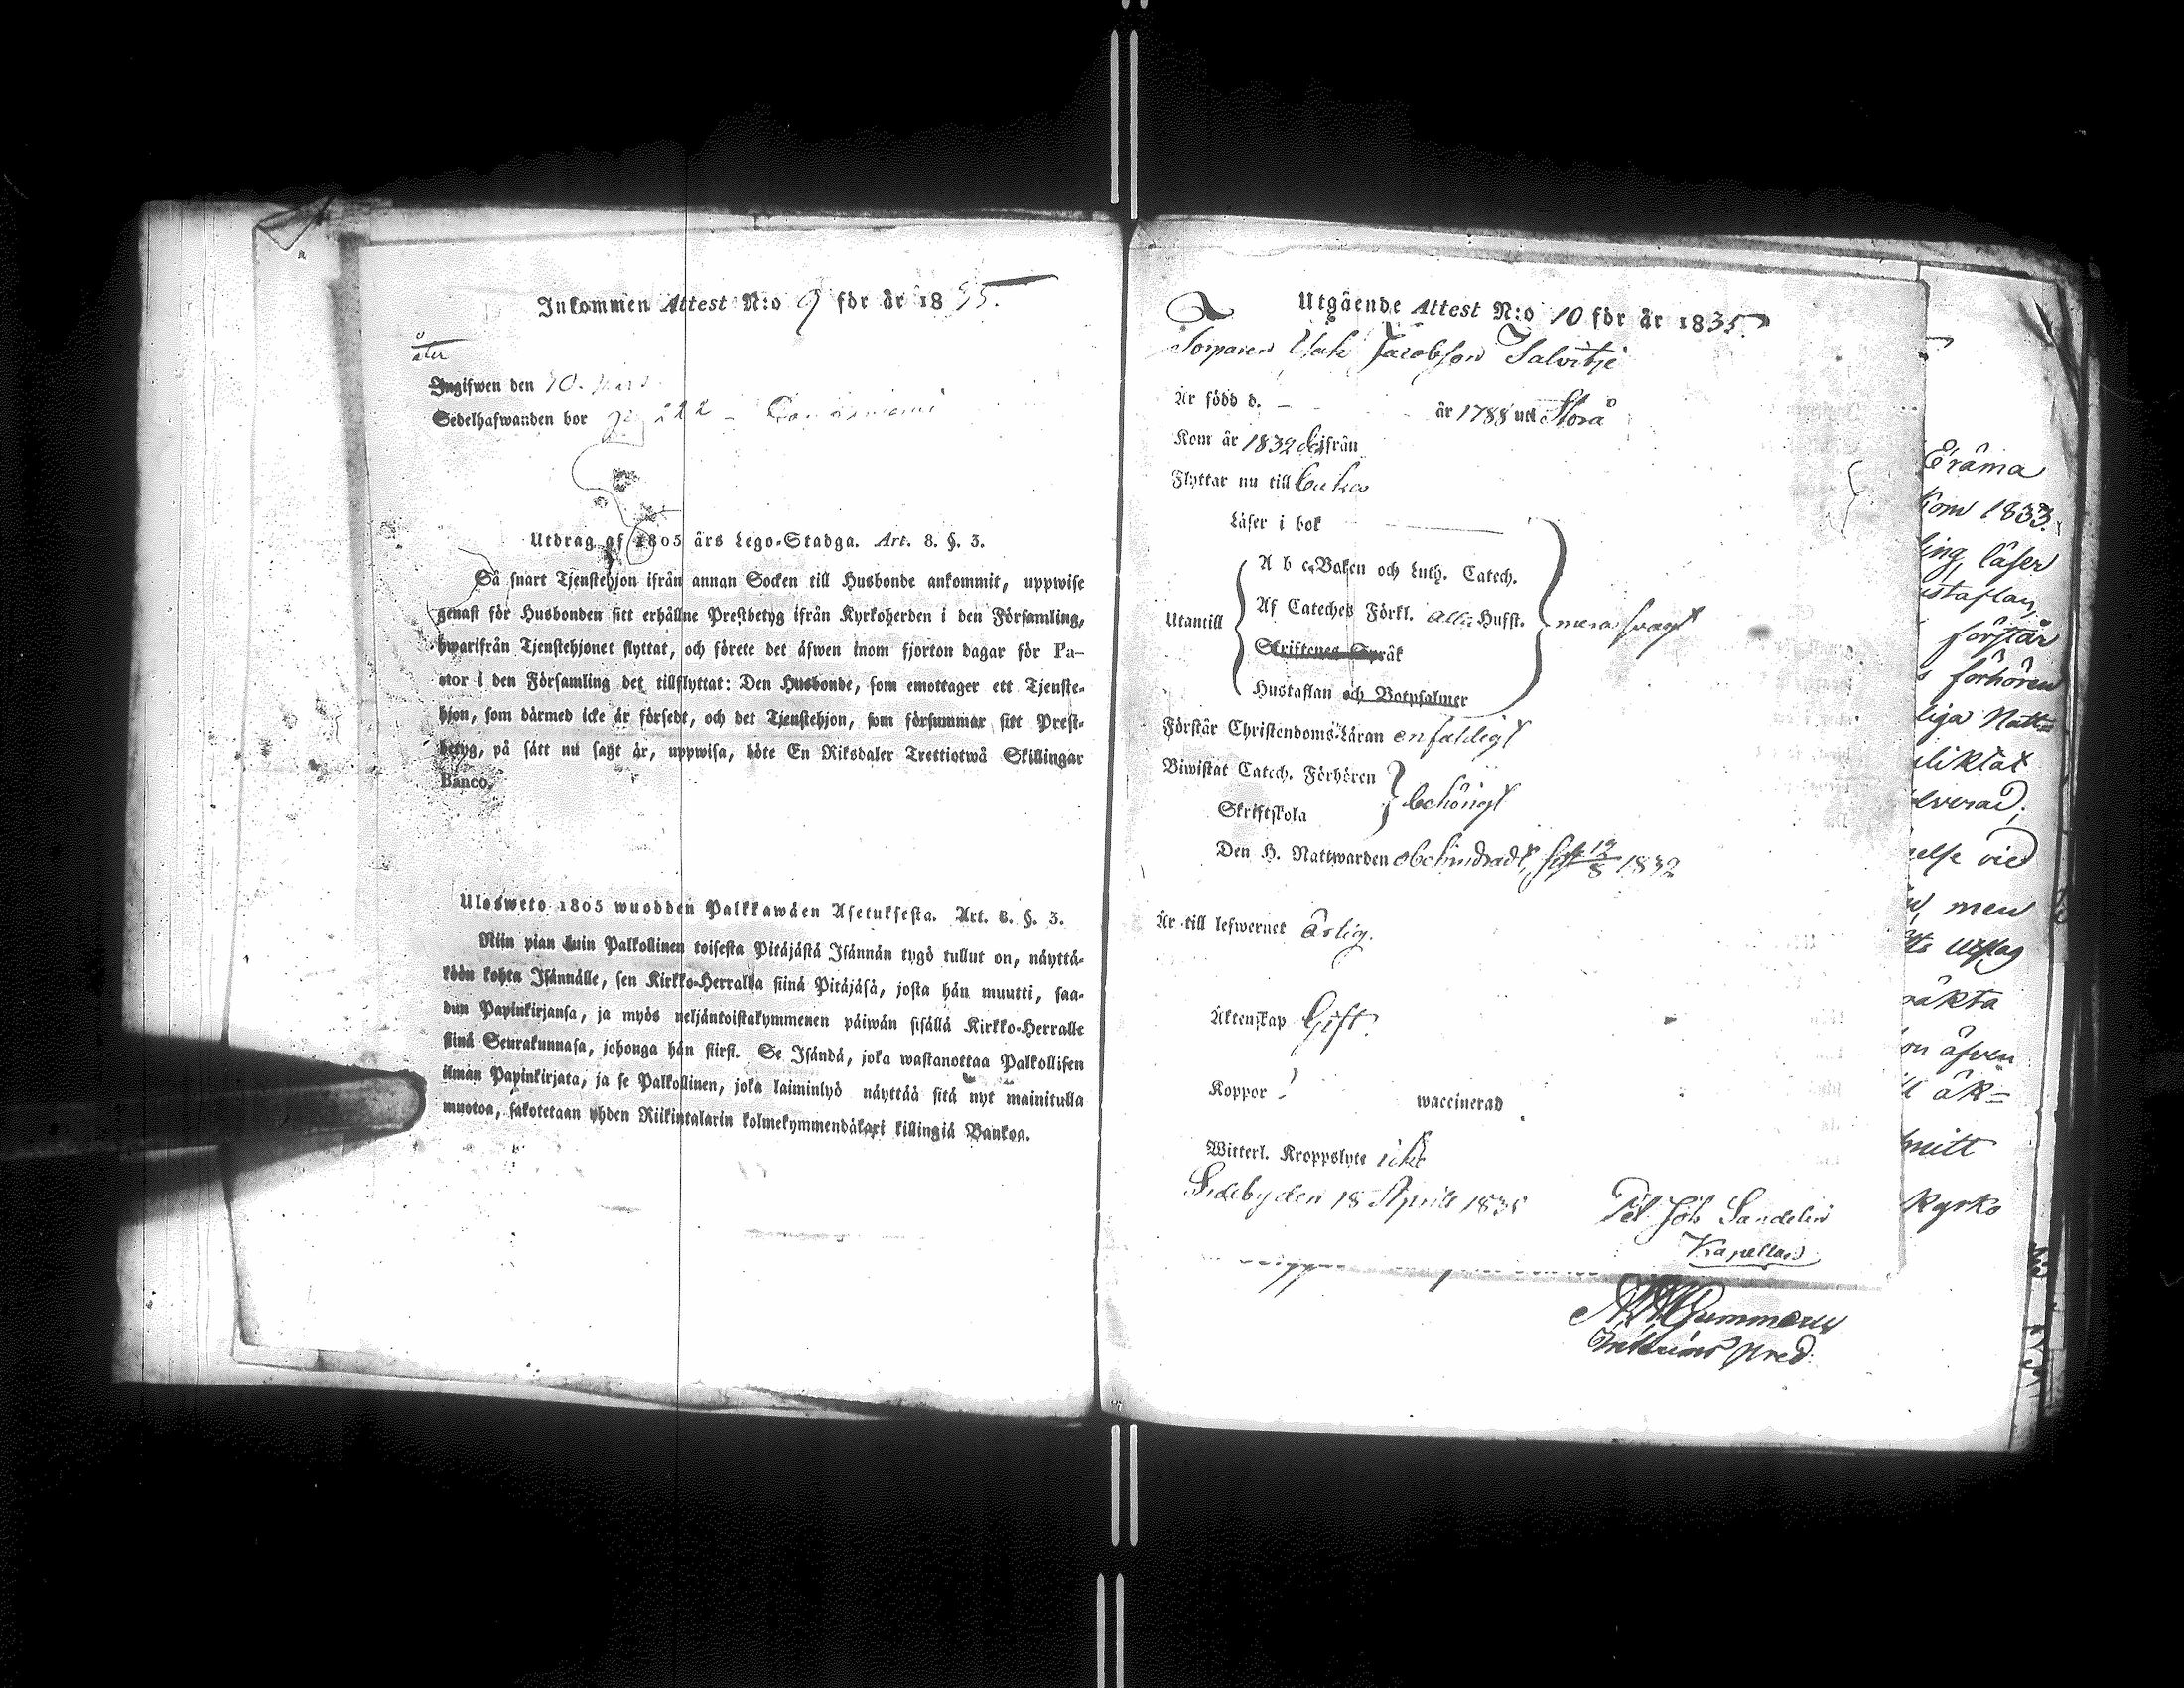 Inkommen Attest N:o 9 för år 1835.
åter
Ingifwen den 30.
Sedelhafwanden bor
Utdrag af 1805 års Lego-Stadga. Art. 8. §. 3.
Så snart Tjenstehjon ifrån annan Socken till Husbonde ankommit, uppwise
genast för Husbonden sitt erhållne Prestbetyg ifrån Kyrkoherden i den Församling,
hwarifrån Tjenstehjonet flyttat, och förete det äfwen inom fjorton dagar för Pa-
stor i den Församling det tillflyttat: Den Husbonde, som emottager ett Tjenste-
hjon, som därmed icke är försedt, och det Tjenstehjon, som försummar sitt Prest-
betyg, på sätt nu sagt är, uppwisa, böte En Riksdaler Trettiotwå Skillingar
Banco.
Ulosweto 1805 wuodden Palkkawäen Asetuksesta. Art. 8. §. 3.
Niin pian kuin Palkollinen toisesta Pitäjästä Isännän tygö tullut on, näyttä-
köön kohta Isännälle, sen Kirkko-Herralda siinä Pitäjäsä, josta hän muutti, saa-
dun Papinkirjansa, ja myös neljäntoistakymmenen päiwän sisällä Kirkko-Herralle
siinä Seurakunnasa, johonga hän siirst. Se Isändä, joka wastanottaa Palkollisen
ilman Papinkirjata, ja se Palkollinen, joka laiminlyö näyttää sitä nyt mainitulla
muotoa, sakotetaan yhden Riikintalarin kolmekymmendäkaxi killingiä Bankoa.
Utgående Attest N:o 10 för år 1835.
Torparen Isak Jacobsson Salvitje
Är född d. – år 1788 uti Storå
Kom år 1832 derifrån
Flyttar nu till
Läser i bok
A b c-Boken och Luth. Catech.
Utantill Af Cateches Förkl. alla Hufst. mera svagt
Skriftenes Språk
Hustaflan och Botpsalmer
Förstår Christendoms-Läran enfaldigt
Biwistat Catech. Förhören
Skriftskola behörigt
Den H. Nattwarden obehindradt, sist 12/8 1832
Är till lefwernet ärlig.
Äktenskap Gift.
Koppor waccinerad
Witterl. Kroppslyte icke
Sideby den 18 April 1835
Joh Sandelin
Kapellan
Gummerus
Pred.
Eråma
Kom 1833.
läser
förstår
förhören
Natt=
vid
men
äfven
äk=
Kyrko